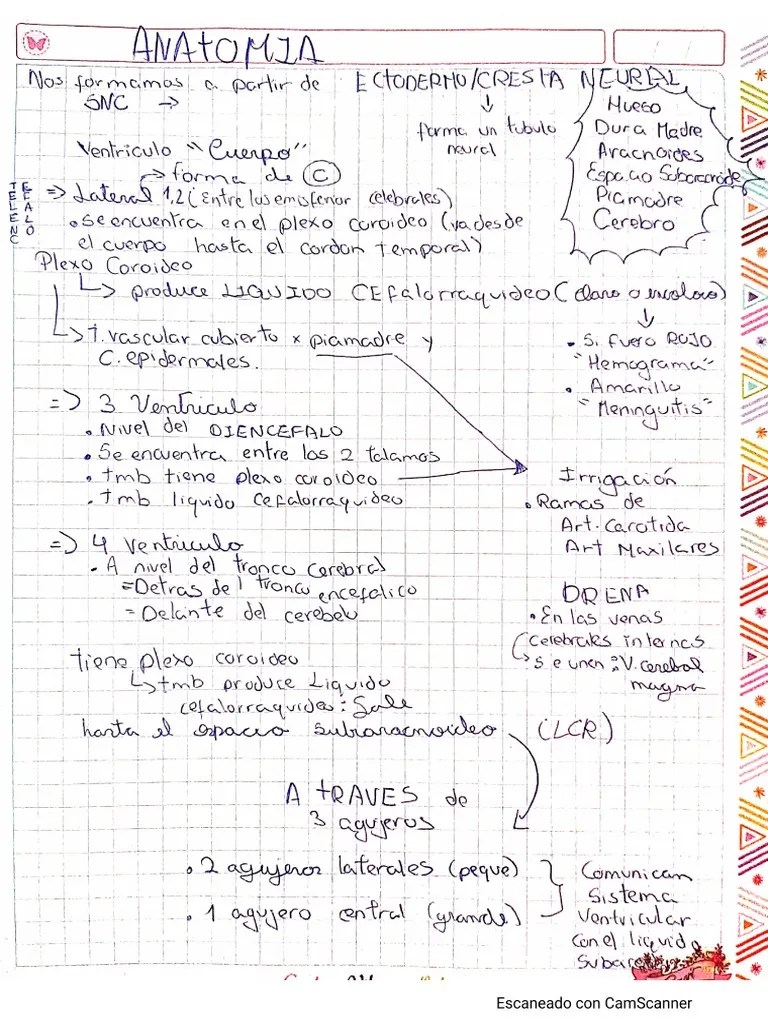 ANATOMIA
Nos formamos a partir de ECTODERMO/CRESTA NEURAL
SNC →
↓
forma un tubulo
neural
Hueso
Dura Madre
Aracnoides
Espacio Subaracnoide
Piamadre
Cerebro
Ventriculo "Cuerpo"
→ forma de C
TELENCEFALO
=> Lateral 1,2 (Entre los emisferior celebrales)
• Se encuentra en el plexo coroideo (va desde
el cuerpo hasta el cordon temporal)
Plexo Coroideo
↳ produce LIQUIDO CEfalorraquideo (claro o incoloro)
↳ t. vascular cubierto x piamadre y
C. epidermales.
↓
• Si fuero ROJO
"Hemograma"
• Amarillo
"Meninguitis"
=> 3 Ventriculo
• Nivel del DIENCEFALO
• Se encuentra entre los 2 talamos
• tmb tiene plexo coroideo
• tmb liquido cefalorraquideo
Irrigación
• Ramas de
Art. Carotida
Art Maxilares
=> 4 ventriculo
• A nivel del tronco cerebral
= Detras del tronco encefalico
= Delante del cerebelo
DRENA
• En las venas
cerebrales internas
↳ Se unen: V. cerebal
magma
tiene plexo coroideo
↳ tmb produce Liquido
cefalorraquideo: Sale
hasta el espacio subaracnoideo (LCR)
A TRAVES de
3 agujeros
• 2 agujeros laterales (peque)
• 1 agujero central (grande)
Comunican
Sistema
Ventricular
Con el liquido
Escaneado con CamScanner